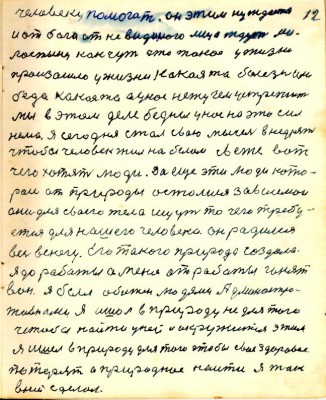 12
человеку помогат. он этим нуждается
и от бога от не видимого лица ждут ми-
лостини, как чут ето такое у жизни
произошло у жизни какаята болезнь или
беда какаята а уное нету чем встретит
мы в этом деле бедны уное на это сил
нема. Я сегодня стал сваю мысел внедрят
чтобы человек жил на белом свете вот
чего хотят люди. Да еще эти люди кото-
раи от природы остолися зависимои
они для своего тела ищут то чего требу-
ется для нашего человека он родился
веь внегу. Его такого природа создала.
Я до работы а меня от работы гонят
вон. я был обижен людями Админостро-
тивными. Я ишол в природу не для того
чтобы найти уней и окружится этим
Я ишел в природу для того чтобы свае здоровее
потерят а природное найти я так
вней сделал.